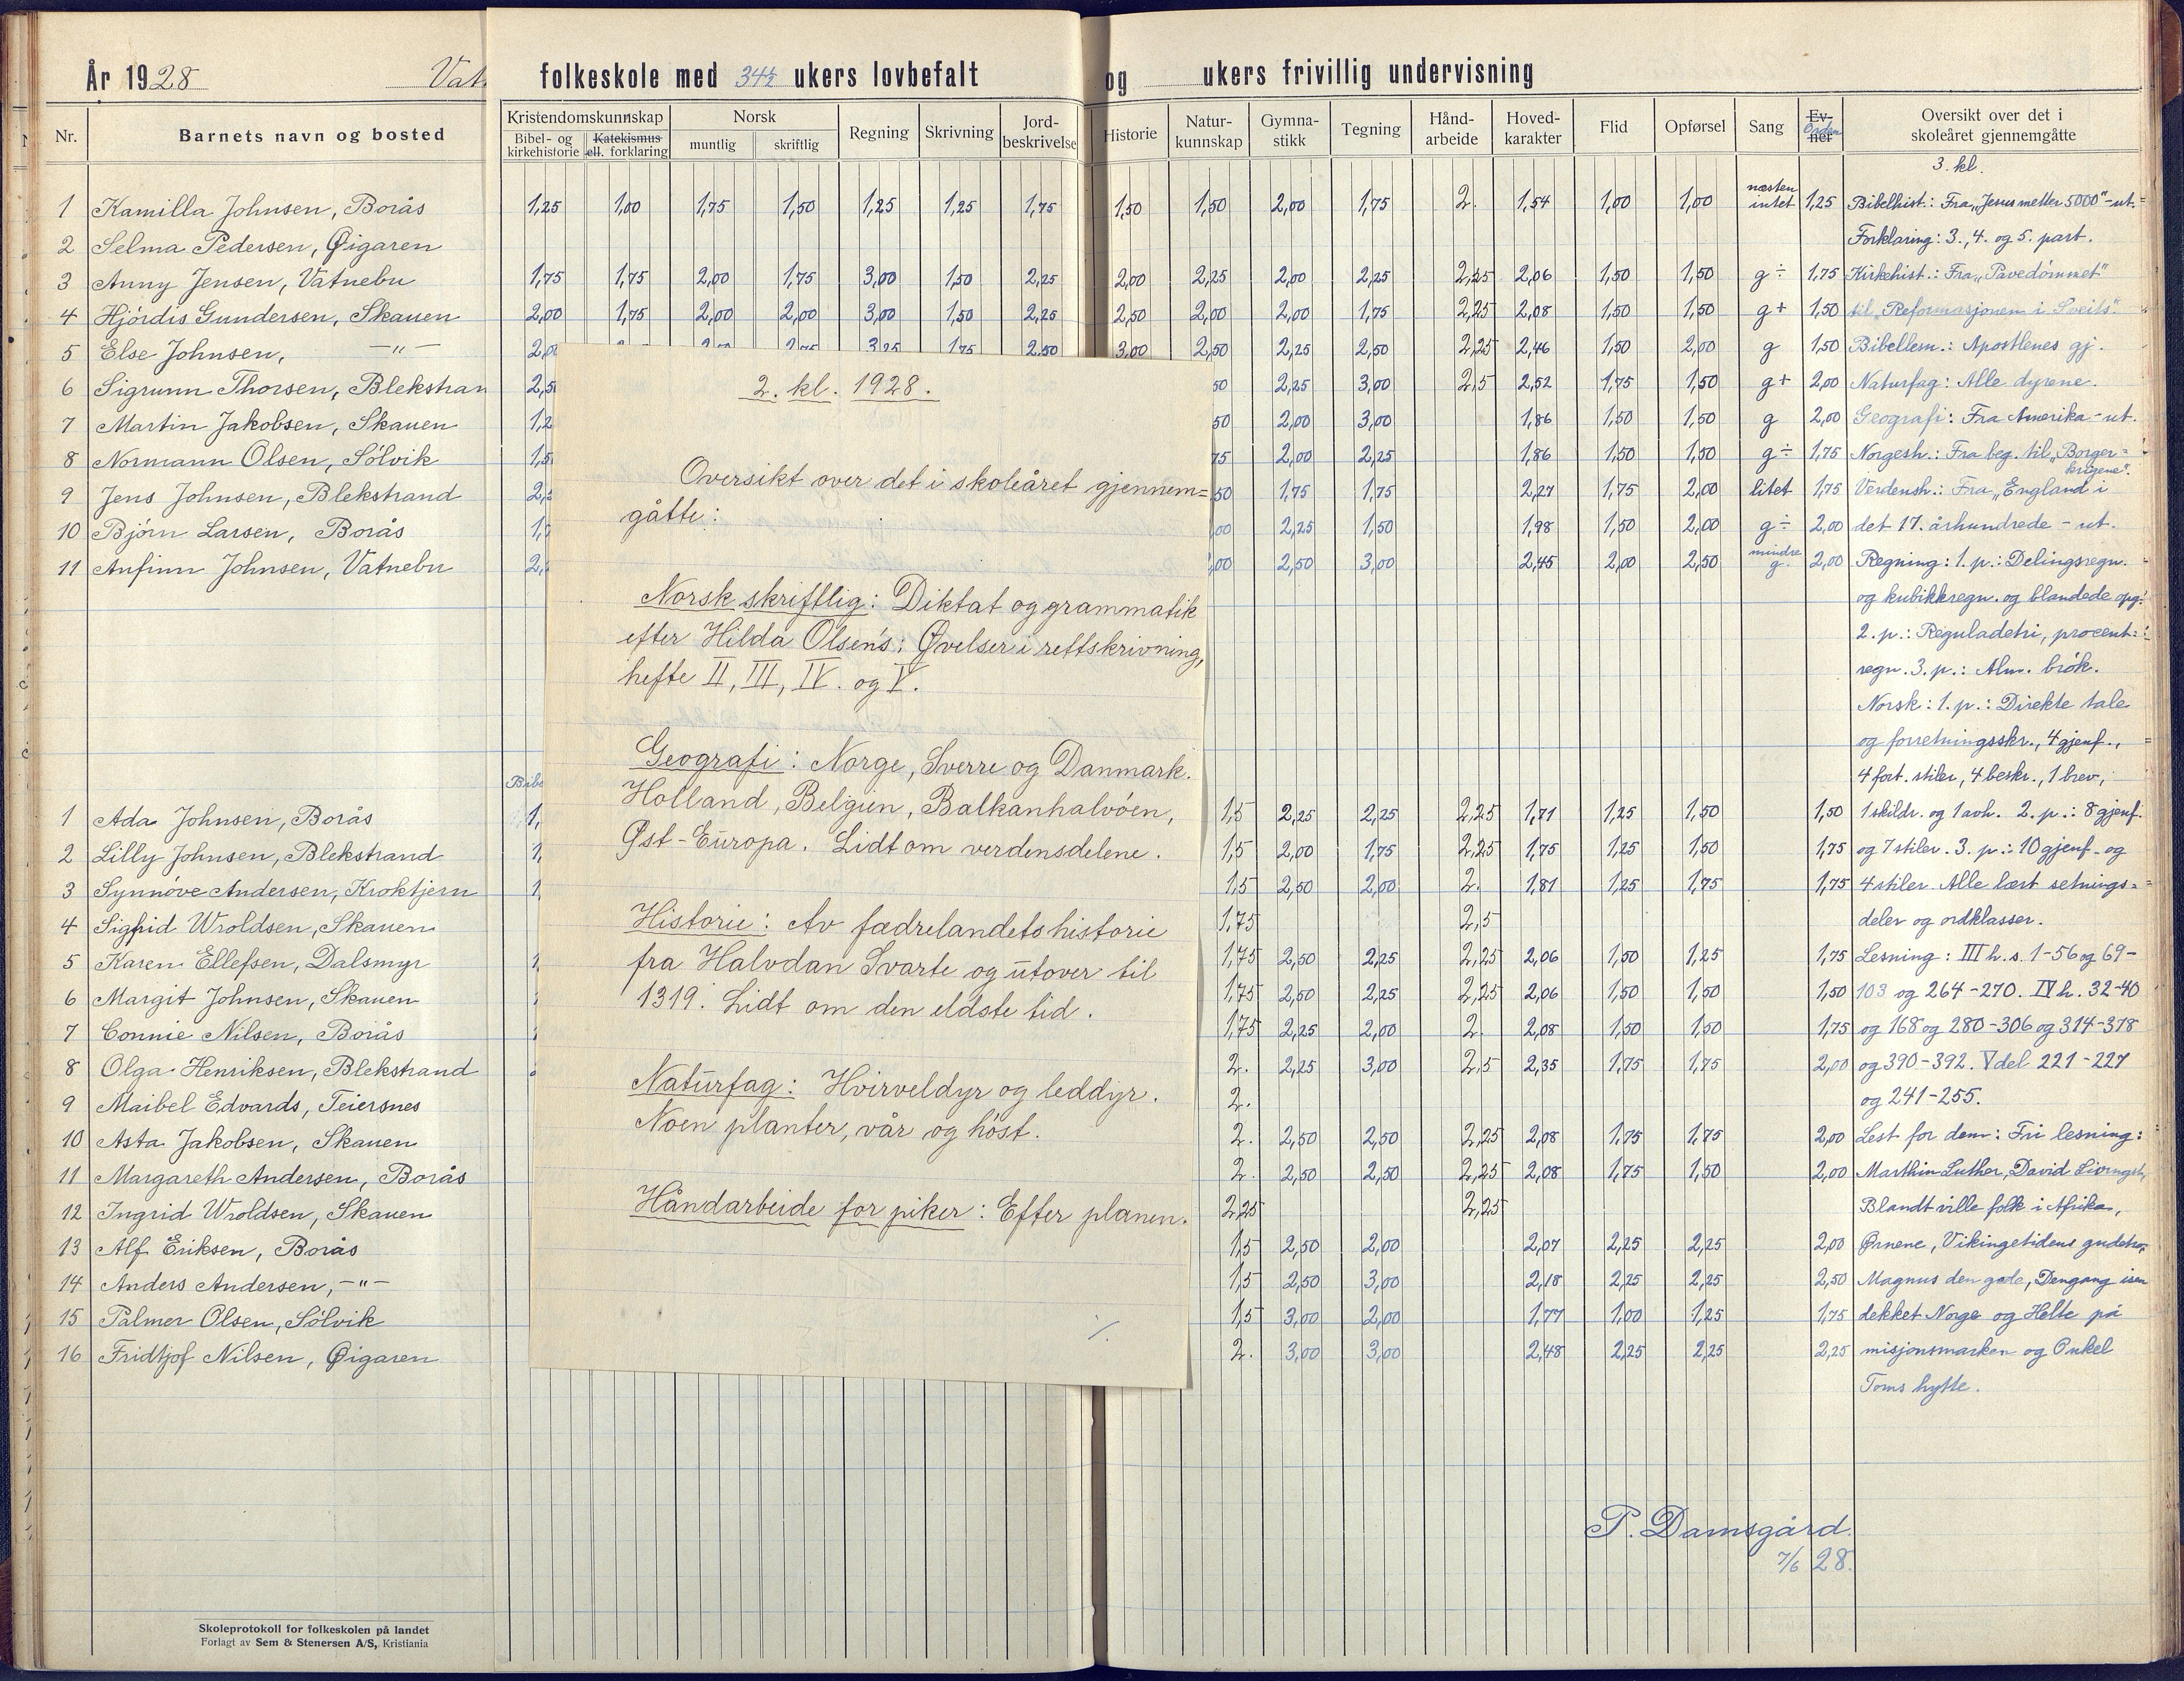 År 1928 Vat
folkeskole med 34½ ukers lovbefalt
og ukers frivillig undervisning
Nr. Barnets navn og bosted
Kristendomskunnskap Norsk Regning Skrivning Jord-beskrivelse
Bibel- og kirkehistorie Katekismus ell. forklaring muntlig skriftlig
Historie Natur-kunnskap Gymna-stikk Tegning Hånd-arbeide Hoved-karakter Flid Opførsel Sang Ev-ner Orden Oversikt over det i skoleåret gjennemgåtte
3. kl.
1 Kamilla Johnsen, Borås 1,25 1,00 1,75 1,50 1,25 1,25 1,75 1,50 1,50 2,00 1,75 2. 1,54 1,00 1,00 næsten intet 1,25 Bibelhist.: Fra „Jesus metter 5000" - ut.
2 Selma Pedersen, Øigaren Forklaring: 3., 4. og 5. part.
3 Anny Jensen, Vatnebu 1,75 1,75 2,00 1,75 3,00 1,50 2,25 2,00 2,25 2,00 2,25 2,25 2,06 1,50 1,50 g ÷ 1,75 Kirkehist.: Fra „Pavedømmet"
4 Hjördis Gundersen, Skauen 2,00 1,75 2,00 2,00 3,00 1,50 2,25 2,50 2,00 2,00 1,75 2,25 2,08 1,50 1,50 g + 1,50 til „Reformasjonen i Sveits".
5 Else Johnsen, -"- 3,25 1,75 2,50 3,00 2,50 2,25 2,50 2,25 2,46 1,50 2,00 g 1,50 Bibellesn.: Apostlenes gj.
6 Sigrunn Thorsen, Blekstran 2,5 50 2,25 3,00 2,5 2,52 1,75 1,50 g + 2,00 Naturfag: Alle dyrene.
7 Martin Jakobsen, Skauen 1,2 50 2,00 3,00 1,86 1,50 1,50 g 2,00 Geografi: Fra Amerika - ut.
8 Normann Olsen, Sölvik 1,5 75 2,00 2,25 1,86 1,50 1,50 g ÷ 1,75 Norgesh.: Fra beg. til „Borger=
krigene".
9 Jens Johnsen, Blekstrand 2, 50 1,75 1,75 2,27 1,75 2,00 litet 1,75 Verdensh.: Fra „England i
10 Björn Larsen, Borås 1, 00 2,25 1,50 1,98 1,50 2,00 g ÷ 2,00 det 17. århundrede - ut.
11 Anfinn Johnsen, Vatnebu 2, ,00 2,50 3,00 2,45 2,00 2,50 mindre g. 2,00 Regning: 1. p.: Delingsregn.
og kubikkregn. og blandede opg.
2. p.: Reguladetri, procent=
regn. 3. p.: Alm. brök.
Norsk: 1. p.: Direkte tale
og forretningsskr., 4 gjenf.,
4 fort. stiler, 4 beskr., 1 brev,
Bibe
1 Ada Johnsen, Borås 1, 1,5 2,25 2,25 2,25 1,71 1,25 1,50 1,50 1 skildr. og 1 avh. 2. p.: 8 gjenf.
2 Lilly Johnsen, Blekstrand 1, 1,5 2,00 1,75 2,25 1,75 1,25 1,50 1,75 og 7 stiler. 3. p.: 10 gjenf. og
3 Synnöve Andersen, Kroktjern 1 1,5 2,50 2,00 2. 1,81 1,25 1,75 1,75 4 stiler. Alle lært setnings=
4 Sigfrid Wroldsen, Skauen 1,75 2,5 deler og ordklasser.
5 Karen Ellefsen, Dalsmyr 1 1,75 2,50 2,25 2,25 2,06 1,50 1,25 1,75 Lesning: III h. s. 1-56 og 69-
6 Margit Johnsen, Skauen 1,75 2,50 2,25 2,25 2,06 1,50 1,50 1,50 103 og 264-270. IV h. 32-40
7 Connie Nilsen, Borås 1,75 2,25 2,00 2. 2,08 1,50 1,50 1,75 og 168 og 280-306 og 314-378
8 Olga Henriksen, Blekstrand 2. 2,25 3,00 2,5 2,35 1,75 1,75 2,00 og 390-392. V del 221-227
9 Maibel Edvards, Teiersnes 2. og 241-255.
10 Asta Jakobsen, Skauen 2. 2,50 2,50 2,25 2,08 1,75 1,75 2,00 Lest for dem: Fri lesning:
11 Margareth Andersen, Borås 2. 2,50 2,50 2,25 2,08 1,75 1,50 2,00 Marthin Luther, David Livingst,
12 Ingrid Wroldsen, Skauen 2,25 2,25 Blandt ville folk i Afrika,
13 Alf Eriksen, Borås 1,5 2,50 2,00 2,07 2,25 2,25 2,00 Ørnene, Vikingetidens gudetro,
14 Anders Andersen, -"- 1,5 2,50 3,00 2,18 2,25 2,25 2,50 Magnus den gode, Dengang isen
15 Palmer Olsen, Sölvik 1,5 3,00 2,00 1,77 1,00 1,25 1,75 dekket Norge og Helte på
16 Fridtjof Nilsen, Øigaren 2. 3,00 3,00 2,48 2,25 2,25 2,25 misjonsmarken og Onkel
Toms hytte.
P. Damsgård.
7/6 28.
2. kl. 1928.
Oversikt over det i skoleåret gjennem=
gåtte:
Norsk skriftlig: Diktat og grammatik
efter Hilda Olsens: Øvelser i rettskrivning,
hefte II, III, IV. og V.
Geografi: Norge, Sverre og Danmark.
Holland, Belgien, Balkanhalvöen,
Øst-Europa. Lidt om verdensdelene.
Historie: Av fædrelandets historie
fra Halvdan Svarte og utover til
1319. Lidt om den eldste tid.
Naturfag: Hvirveldyr og leddyr.
Noen planter, vår og höst.
Håndarbeide for piker: Efter planen.
Skoleprotokoll for folkeskolen på landet
Forlagt av Sem & Stenersen A/S, Kristiania